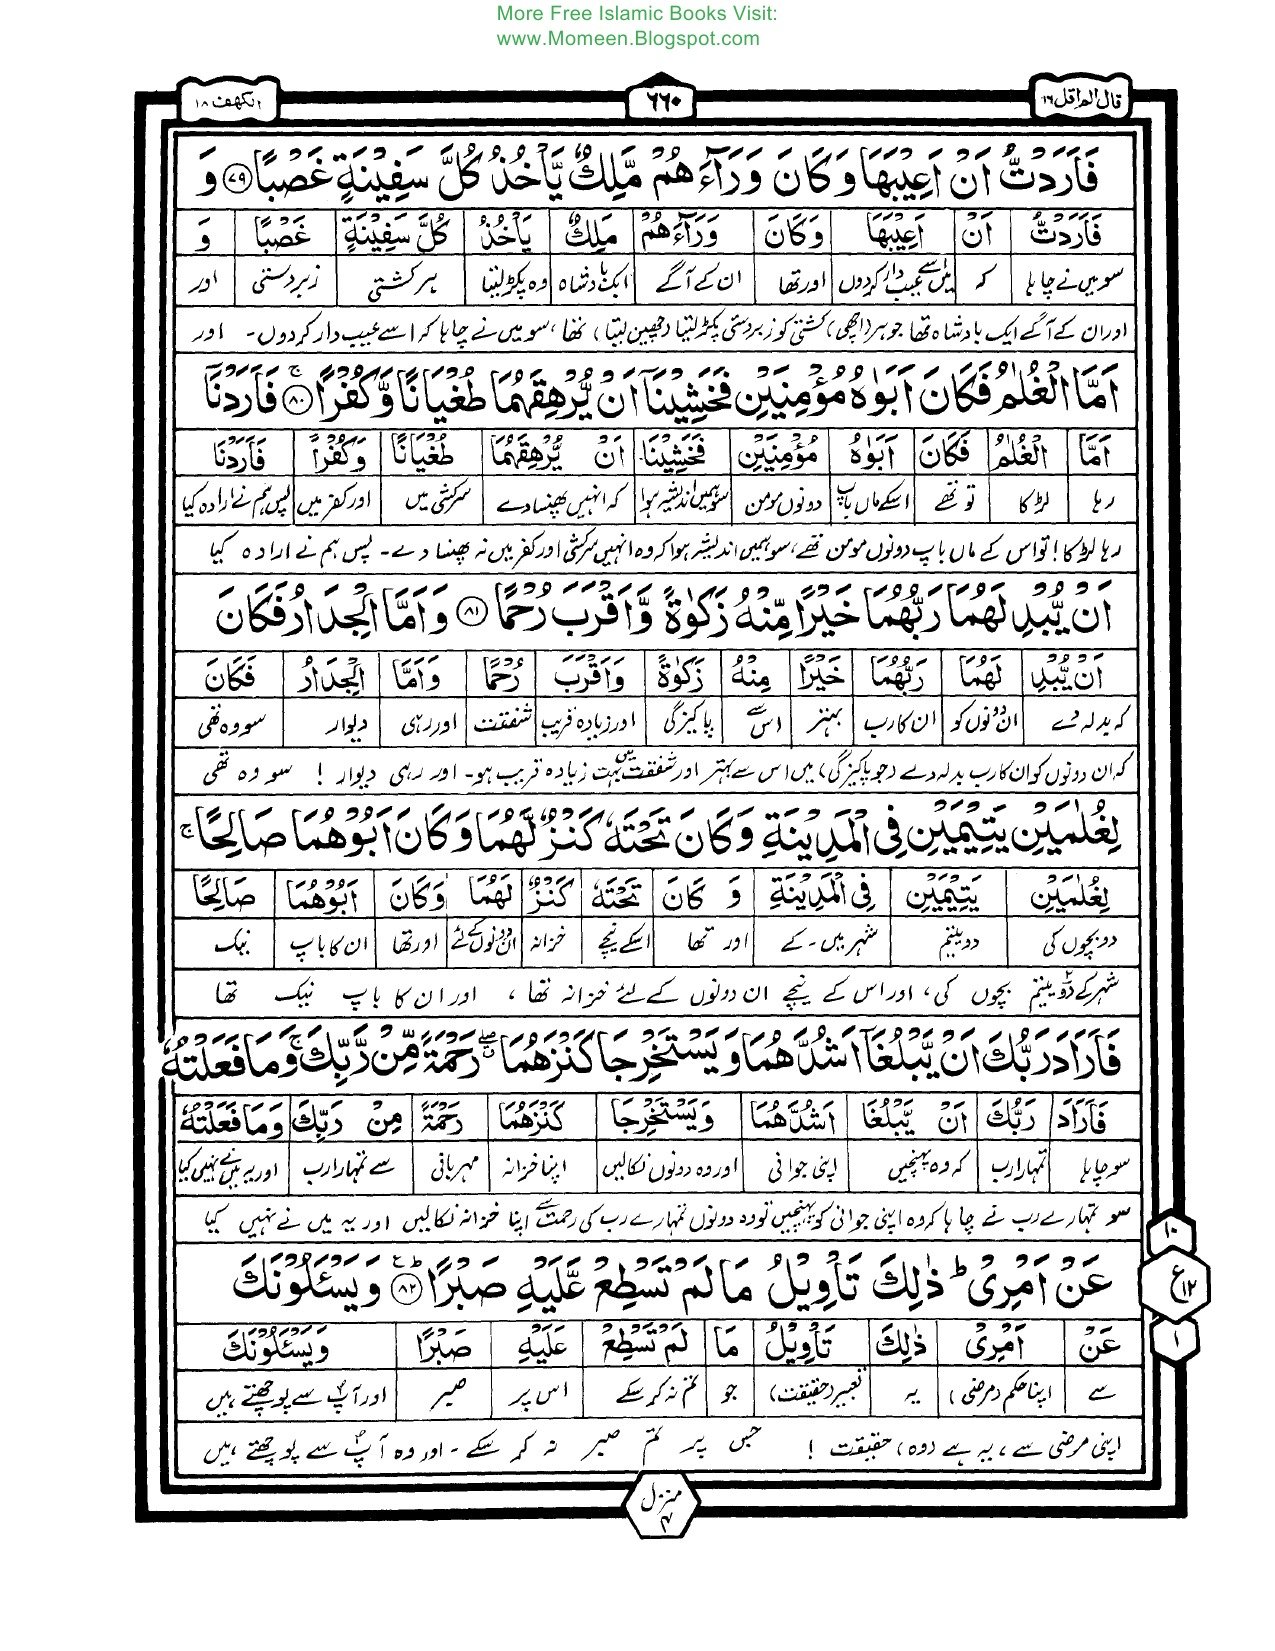 More Free Islamic Books Visit:
www.Momeen.Blogspot.com
قال الم اقل ۱۶ ۶۶۰ الکہف ۱۸
فَاَرَدْتُّ اَنْ اَعِيْبَهَا وَكَانَ وَرَآءَهُمْ مَّلِكٌ يَّاْخُذُ كُلَّ سَفِيْنَةٍ غَصْبًا ۷۹ وَ
فَاَرَدْتُّ اَنْ اَعِيْبَهَا وَكَانَ وَرَآءَهُمْ مَلِكٌ يَاْخُذُ كُلَّ سَفِيْنَةٍ غَصْبًا وَ
سو میں نے چاہا کہ میں اسے عیب دار کردوں اور تھا ان کے آگے ایک بادشاہ وہ پکڑ لیتا ہر کشتی زبردستی اور
اور ان کے آگے ایک بادشاہ تھا جو ہر (اچھی) کشتی کو زبردستی پکڑ لیتا (چھین لیتا) تھا، سو میں نے چاہا کہ اسے عیب دار کردوں۔ اور
اَمَّا الْغُلٰمُ فَكَانَ اَبَوٰهُ مُؤْمِنَيْنِ فَخَشِيْنَآ اَنْ يُّرْهِقَهُمَا طُغْيَانًا وَّكُفْرًا ۚ ۸۰ فَاَرَدْنَآ
اَمَّا الْغُلٰمُ فَكَانَ اَبَوٰهُ مُؤْمِنَيْنِ فَخَشِيْنَا اَنْ يُّرْهِقَهُمَا طُغْيَانًا وَكُفْرًا فَاَرَدْنَا
رہا لڑکا تو تھے اسکے ماں باپ دونوں مومن سو ہمیں اندیشہ ہوا کہ انہیں پھنسا دے سرکشی میں اور کفر میں پس ہم نے ارادہ کیا
رہا لڑکا! تو اس کے ماں باپ دونوں مومن تھے، سو ہمیں اندیشہ ہوا کہ وہ انہیں سرکشی اور کفر میں نہ پھنسا دے۔ پس ہم نے ارادہ کیا
اَنْ يُّبْدِلَهُمَا رَبُّهُمَا خَيْرًا مِّنْهُ زَكٰوةً وَّاَقْرَبَ رُحْمًا ۸۱ وَاَمَّا الْجِدَارُ فَكَانَ
اَنْ يُّبْدِلَ لَهُمَا رَبُّهُمَا خَيْرًا مِنْهُ زَكٰوةً وَاَقْرَبَ رُحْمًا وَاَمَّا الْجِدَارُ فَكَانَ
کہ بدلہ دے ان دونوں کو ان کا رب بہتر اس سے پاکیزگی اور زیادہ قریب شفقت اور رہی دیوار سو وہ تھی
کہ ان دونوں کو ان کا رب بدلہ دے (جو پاکیزگی) میں اس سے بہتر اور شفقت میں بہت زیادہ قریب ہو۔ اور رہی دیوار! سو وہ تھی
لِغُلٰمَيْنِ يَتِيْمَيْنِ فِى الْمَدِيْنَةِ وَكَانَ تَحْتَهٗ كَنْزٌ لَّهُمَا وَكَانَ اَبُوْهُمَا صَالِحًا ۚ
لِغُلٰمَيْنِ يَتِيْمَيْنِ فِى الْمَدِيْنَةِ وَ كَانَ تَحْتَهٗ كَنْزٌ لَهُمَا وَكَانَ اَبُوْهُمَا صَالِحًا
دو بچوں کی دو یتیم شہر میں ۔ کے اور تھا اسکے نیچے خزانہ ان دونوں کے لئے اور تھا ان کا باپ نیک
شہر کے دو یتیم بچوں کی، اور اس کے نیچے ان دونوں کے لئے خزانہ تھا، اور ان کا باپ نیک تھا
فَاَرَادَ رَبُّكَ اَنْ يَّبْلُغَآ اَشُدَّهُمَا وَيَسْتَخْرِجَا كَنْزَهُمَا رَحْمَةً مِّنْ رَّبِّكَ ۚ وَمَا فَعَلْتُهٗ
فَاَرَادَ رَبُّكَ اَنْ يَّبْلُغَا اَشُدَّهُمَا وَيَسْتَخْرِجَا كَنْزَهُمَا رَحْمَةً مِنْ رَبِّكَ وَمَا فَعَلْتُهٗ
سو چاہا تمہارا رب کہ وہ پہنچیں اپنی جوانی اور وہ دونوں نکالیں اپنا خزانہ مہربانی سے تمہارا رب اور یہ میں نے نہیں کیا
سو تمہارے رب نے چاہا کہ وہ اپنی جوانی کو پہنچیں تو وہ دونوں تمہارے رب کی رحمت سے اپنا خزانہ نکالیں اور یہ میں نے نہیں کیا
عَنْ اَمْرِىْ ؕ ذٰلِكَ تَاْوِيْلُ مَا لَمْ تَسْطِعْ عَّلَيْهِ صَبْرًا ؕ ع ۸۲ وَيَسْـَٔلُوْنَكَ
عَنْ اَمْرِىْ ذٰلِكَ تَاْوِيْلُ مَا لَمْ تَسْطِعْ عَلَيْهِ صَبْرًا وَيَسْـَٔلُوْنَكَ
سے اپنا حکم (مرضی) یہ تعبیر (حقیقت) جو تم نہ کر سکے اس پر صبر اور آپؐ سے پوچھتے ہیں
اپنی مرضی سے، یہ ہے (وہ) حقیقت! جس پر تم صبر نہ کر سکے ۔ اور وہ آپؐ سے پوچھتے ہیں
۱۰
ع ۱۲
۱
منزل ۴